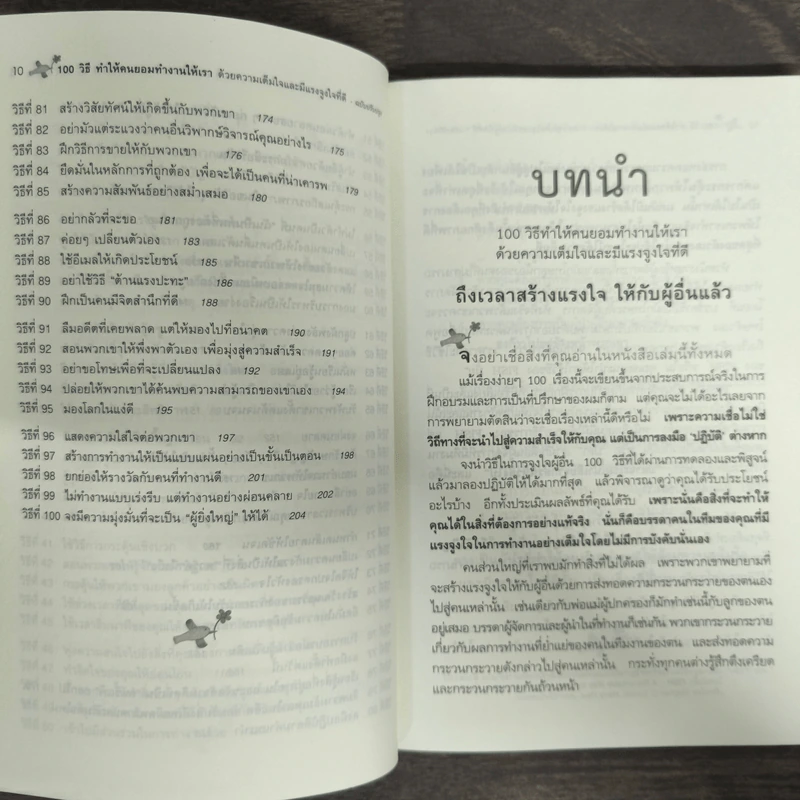 10 100 วิธี ทำให้คนยอมทำงานให้เรา ด้วยความเต็มใจและมีแรงจูงใจที่ดี
วิธีที่ 81 สร้างวิสัยทัศน์ให้เกิดขึ้นกับพวกเขา 174
วิธีที่ 82 อย่ามัวแต่ระแวงว่าคนอื่นวิพากษ์วิจารณ์คุณอย่างไร 175
วิธีที่ 83 ฝึกวิธีการขายให้กับพวกเขา 176
วิธีที่ 84 ยึดมั่นในหลักการที่ถูกต้อง เพื่อจะได้เป็นคนที่น่าเคารพ 179
วิธีที่ 85 สร้างความสัมพันธ์อย่างสม่ำเสมอ 180
วิธีที่ 86 อย่ากลัวที่จะขอ 181
วิธีที่ 87 ค่อยๆ เปลี่ยนตัวเอง 183
วิธีที่ 88 ใช้อีเมลให้เกิดประโยชน์ 185
วิธีที่ 89 อย่าใช้วิธี "ต้านแรงปะทะ" 186
วิธีที่ 90 ฝึกเป็นคนมีจิตสำนึกที่ดี 188
วิธีที่ 91 ลืมอดีตที่เคยพลาด แต่ให้มองไปที่อนาคต 190
วิธีที่ 92 สอนพวกเขาให้พึ่งพาตัวเอง เพื่อมุ่งสู่ความสำเร็จ 191
วิธีที่ 93 อย่าขอโทษเพื่อที่จะเปลี่ยนแปลง 192
วิธีที่ 94 ปล่อยให้พวกเขาได้ค้นพบความสามารถของเขาเอง 194
วิธีที่ 95 มองโลกในแง่ดี 195
วิธีที่ 96 แสดงความใส่ใจต่อพวกเขา 197
วิธีที่ 97 สร้างการทำงานให้เป็นแบบแผนอย่างเป็นขั้นเป็นตอน 198
วิธีที่ 98 ยกย่องให้รางวัลกับคนที่ทำงานดี 201
วิธีที่ 99 ไม่ทำงานแบบเร่งรีบ แต่ทำงานอย่างผ่อนคลาย 202
วิธีที่ 100 จงมีความมุ่งมั่นที่จะเป็น "ผู้ยิ่งใหญ่" ให้ได้ 204
บทนำ
100 วิธีทำให้คนยอมทำงานให้เรา
ด้วยความเต็มใจและมีแรงจูงใจที่ดี
ถึงเวลาสร้างแรงใจ ให้กับผู้อื่นแล้ว
จงอย่าเชื่อสิ่งที่คุณอ่านในหนังสือเล่มนี้ทั้งหมด
แม้เรื่องง่ายๆ 100 เรื่องนี้จะเขียนขึ้นจากประสบการณ์จริงในการ
ฝึกอบรมและการเป็นที่ปรึกษาของผมก็ตาม แต่คุณจะไม่ได้อะไรเลยจาก
การพยายามตัดสินว่าจะเชื่อเรื่องเหล่านี้ดีหรือไม่ เพราะความเชื่อไม่ใช่
วิถีทางที่จะนำไปสู่ความสำเร็จให้กับคุณ แต่เป็นการลงมือ 'ปฏิบัติ' ต่างหาก
จงนำวิธีในการจูงใจผู้อื่น 100 วิธีที่ได้ผ่านการทดลองและพิสูจน์
แล้วมาลองปฏิบัติให้ได้มากที่สุด แล้วพิจารณาดูว่าคุณได้รับประโยชน์
อะไรบ้าง อีกทั้งประเมินผลลัพธ์ที่คุณได้รับ เพราะนั่นคือสิ่งที่จะทำให้
คุณได้ในสิ่งที่ต้องการอย่างแท้จริง นั่นก็คือบรรดาคนในทีมของคุณที่มี
แรงจูงใจในการทำงานอย่างเต็มใจโดยไม่มีการบังคับนั่นเอง
คนส่วนใหญ่ที่เราพบมักทำสิ่งที่ไม่ได้ผล เพราะพวกเขาพยายามที่
จะสร้างแรงจูงใจให้กับผู้อื่นด้วยการส่งทอดความกระวนกระวายของตนเอง
ไปสู่คนเหล่านั้น เช่นเดียวกับพ่อแม่ผู้ปกครองก็มักทำเช่นนี้กับลูกของตน
อยู่เสมอ บรรดาผู้จัดการและผู้นำในที่ทำงานก็เช่นกัน พวกเขากระวนกระวาย
เกี่ยวกับผลการทำงานที่ย่ำแย่ของคนในทีมงานของตน และส่งทอดความ
กระวนกระวายดังกล่าวไปสู่คนเหล่านั้น กระทั่งทุกคนต่างรู้สึกตึงเครียด
และกระวนกระวายกันถ้วนหน้า